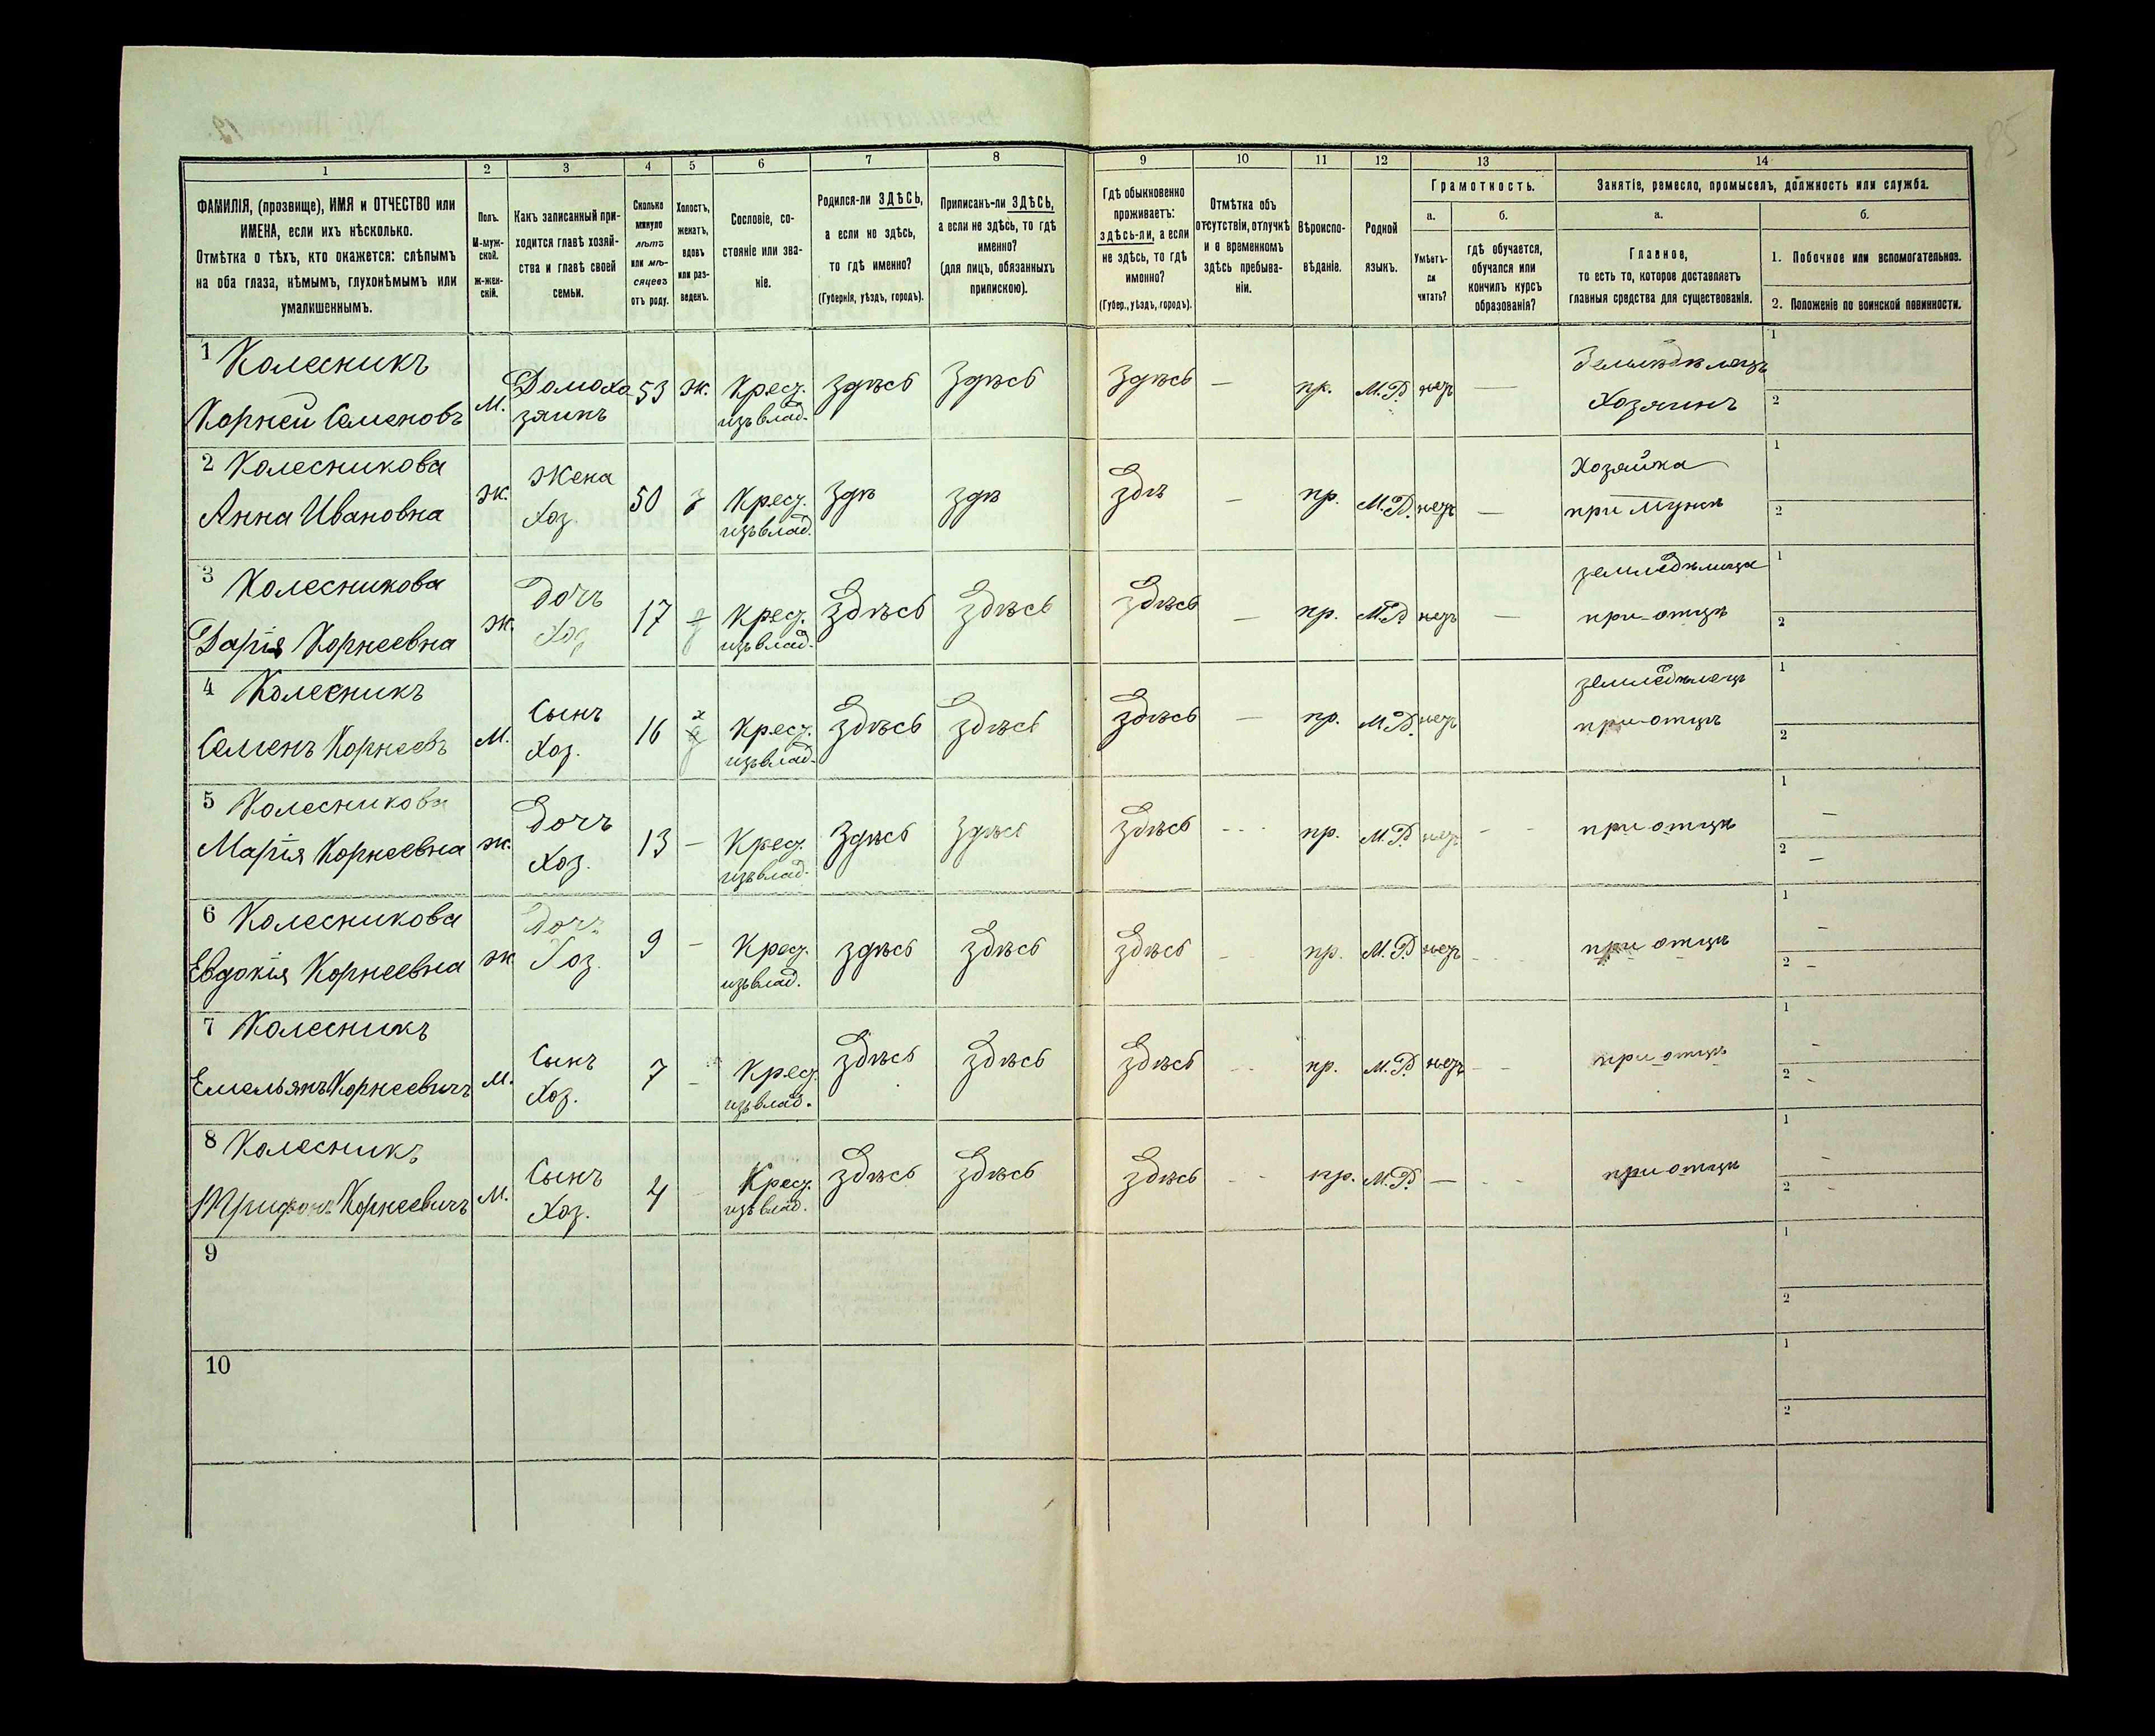 1 2 3 4 5 6 7 8 9 10 11 12 13 14
ФАМИЛІЯ, (прозвище), ИМЯ и ОТЧЕСТВО или
ИМЕНА, если ихъ нѣсколько.
Отмѣтка о тѣхъ, кто окажется: слѣпымъ
на оба глаза, нѣмымъ, глухонѣмымъ или
умалишеннымъ.
Полъ.
М-муж-
ской.
ж-жен-
скій.
Какъ записанный при-
ходится главѣ хозяй-
ства и главѣ своей
семьи.
Сколько
минуло
лѣтъ
или мѣ-
сяцевъ
отъ роду.
Холостъ,
женатъ,
вдовъ
или раз-
веденъ.
Сословіе, со-
стояніе или зва-
ніе.
Родился-ли ЗДѢСЬ,
а если не здѣсь,
то гдѣ именно?
(Губернія, уѣздъ, городъ).
Приписанъ-ли ЗДѢСЬ,
а если не здѣсь, то гдѣ
именно?
(для лицъ, обязанныхъ
припискою).
Гдѣ обыкновенно
проживаетъ:
здѣсь-ли, а если
не здѣсь, то гдѣ
именно?
(Губер., уѣздъ, городъ).
Отмѣтка объ
отсутствіи, отлучкѣ
и о временномъ
здѣсь пребыва-
ніи.
Вѣроиспо-
вѣданіе.
Родной
языкъ.
Грамотность.
а.
Умѣетъ-
ли
читать?
б.
гдѣ обучается,
обучался или
кончилъ курсъ
образованія?
Занятіе, ремесло, промыселъ, должность или служба.
а.
Главное,
то есть то, которое доставляетъ
главныя средства для существованія.
б.
1. Побочное или вспомогательное.
2. Положеніе по воинской повинности.
1 Колесникъ
Корней Семеновъ
М.
Домохо
зяинъ
53
ж.
Крест.
изъ влад.
здѣсь
здѣсь
здѣсь
—
пр.
М.Р.
нетъ
—
Земледѣлецъ
Хозяинъ
1
2
2 Колесникова
Анна Ивановна
ж.
Жена
Хоз.
50
з
Крест.
изъ влад.
здѣ
здѣ
здѣ
—
пр.
М.Р.
нетъ
—
Хозяйка
при мужѣ
1
2
3 Колесникова
Дарія Корнеевна
ж.
Дочь
Хоз
17
Крест.
изъ влад.
здѣсь
здѣсь
здѣсь
—
пр.
М.Р.
нетъ
—
земледѣлица
при отцѣ
1
2
4 Колесникъ
Семенъ Корнеевъ
М.
Сынъ
Хоз.
16
х
Крест.
изъ влад.
здѣсь
здѣсь
здѣсь
—
пр.
М.Р.
нетъ
земледѣлецъ
при отцѣ
1
2
5 Колесникова
Марія Корнеевна
ж.
Дочъ
Хоз.
13
—
Крест.
изъ влад.
здѣсь
здѣсь
здѣсь
- - -
пр.
М.Р.
нетъ
- -
при отцѣ
1 —
2 —
6 Колесникова
Евдокія Корнеевна
ж
Дочъ
Хоз.
9
—
Крест.
изъ влад.
здѣсь
здѣсь
здѣсь
- -
пр.
М.Р.
нетъ
- -
при отцѣ
1 —
2 —
7 Колесникъ
Емельянъ Корнеевичъ
М.
Сынъ
Хоз.
7
-
Крест.
изъ влад.
здѣсь
здѣсь
здѣсь
- -
пр.
М.Р.
нетъ
- -
при отцѣ
1 -
2 -
8 Колесникъ
Трифонъ Корнеевичъ
М.
Сынъ
Хоз.
4
-
Крест.
изъ влад.
здѣсь
здѣсь
здѣсь
- -
пр.
М.Р.
—
- -
при отцѣ
1 -
2 -
9
1
2
10
1
2
85